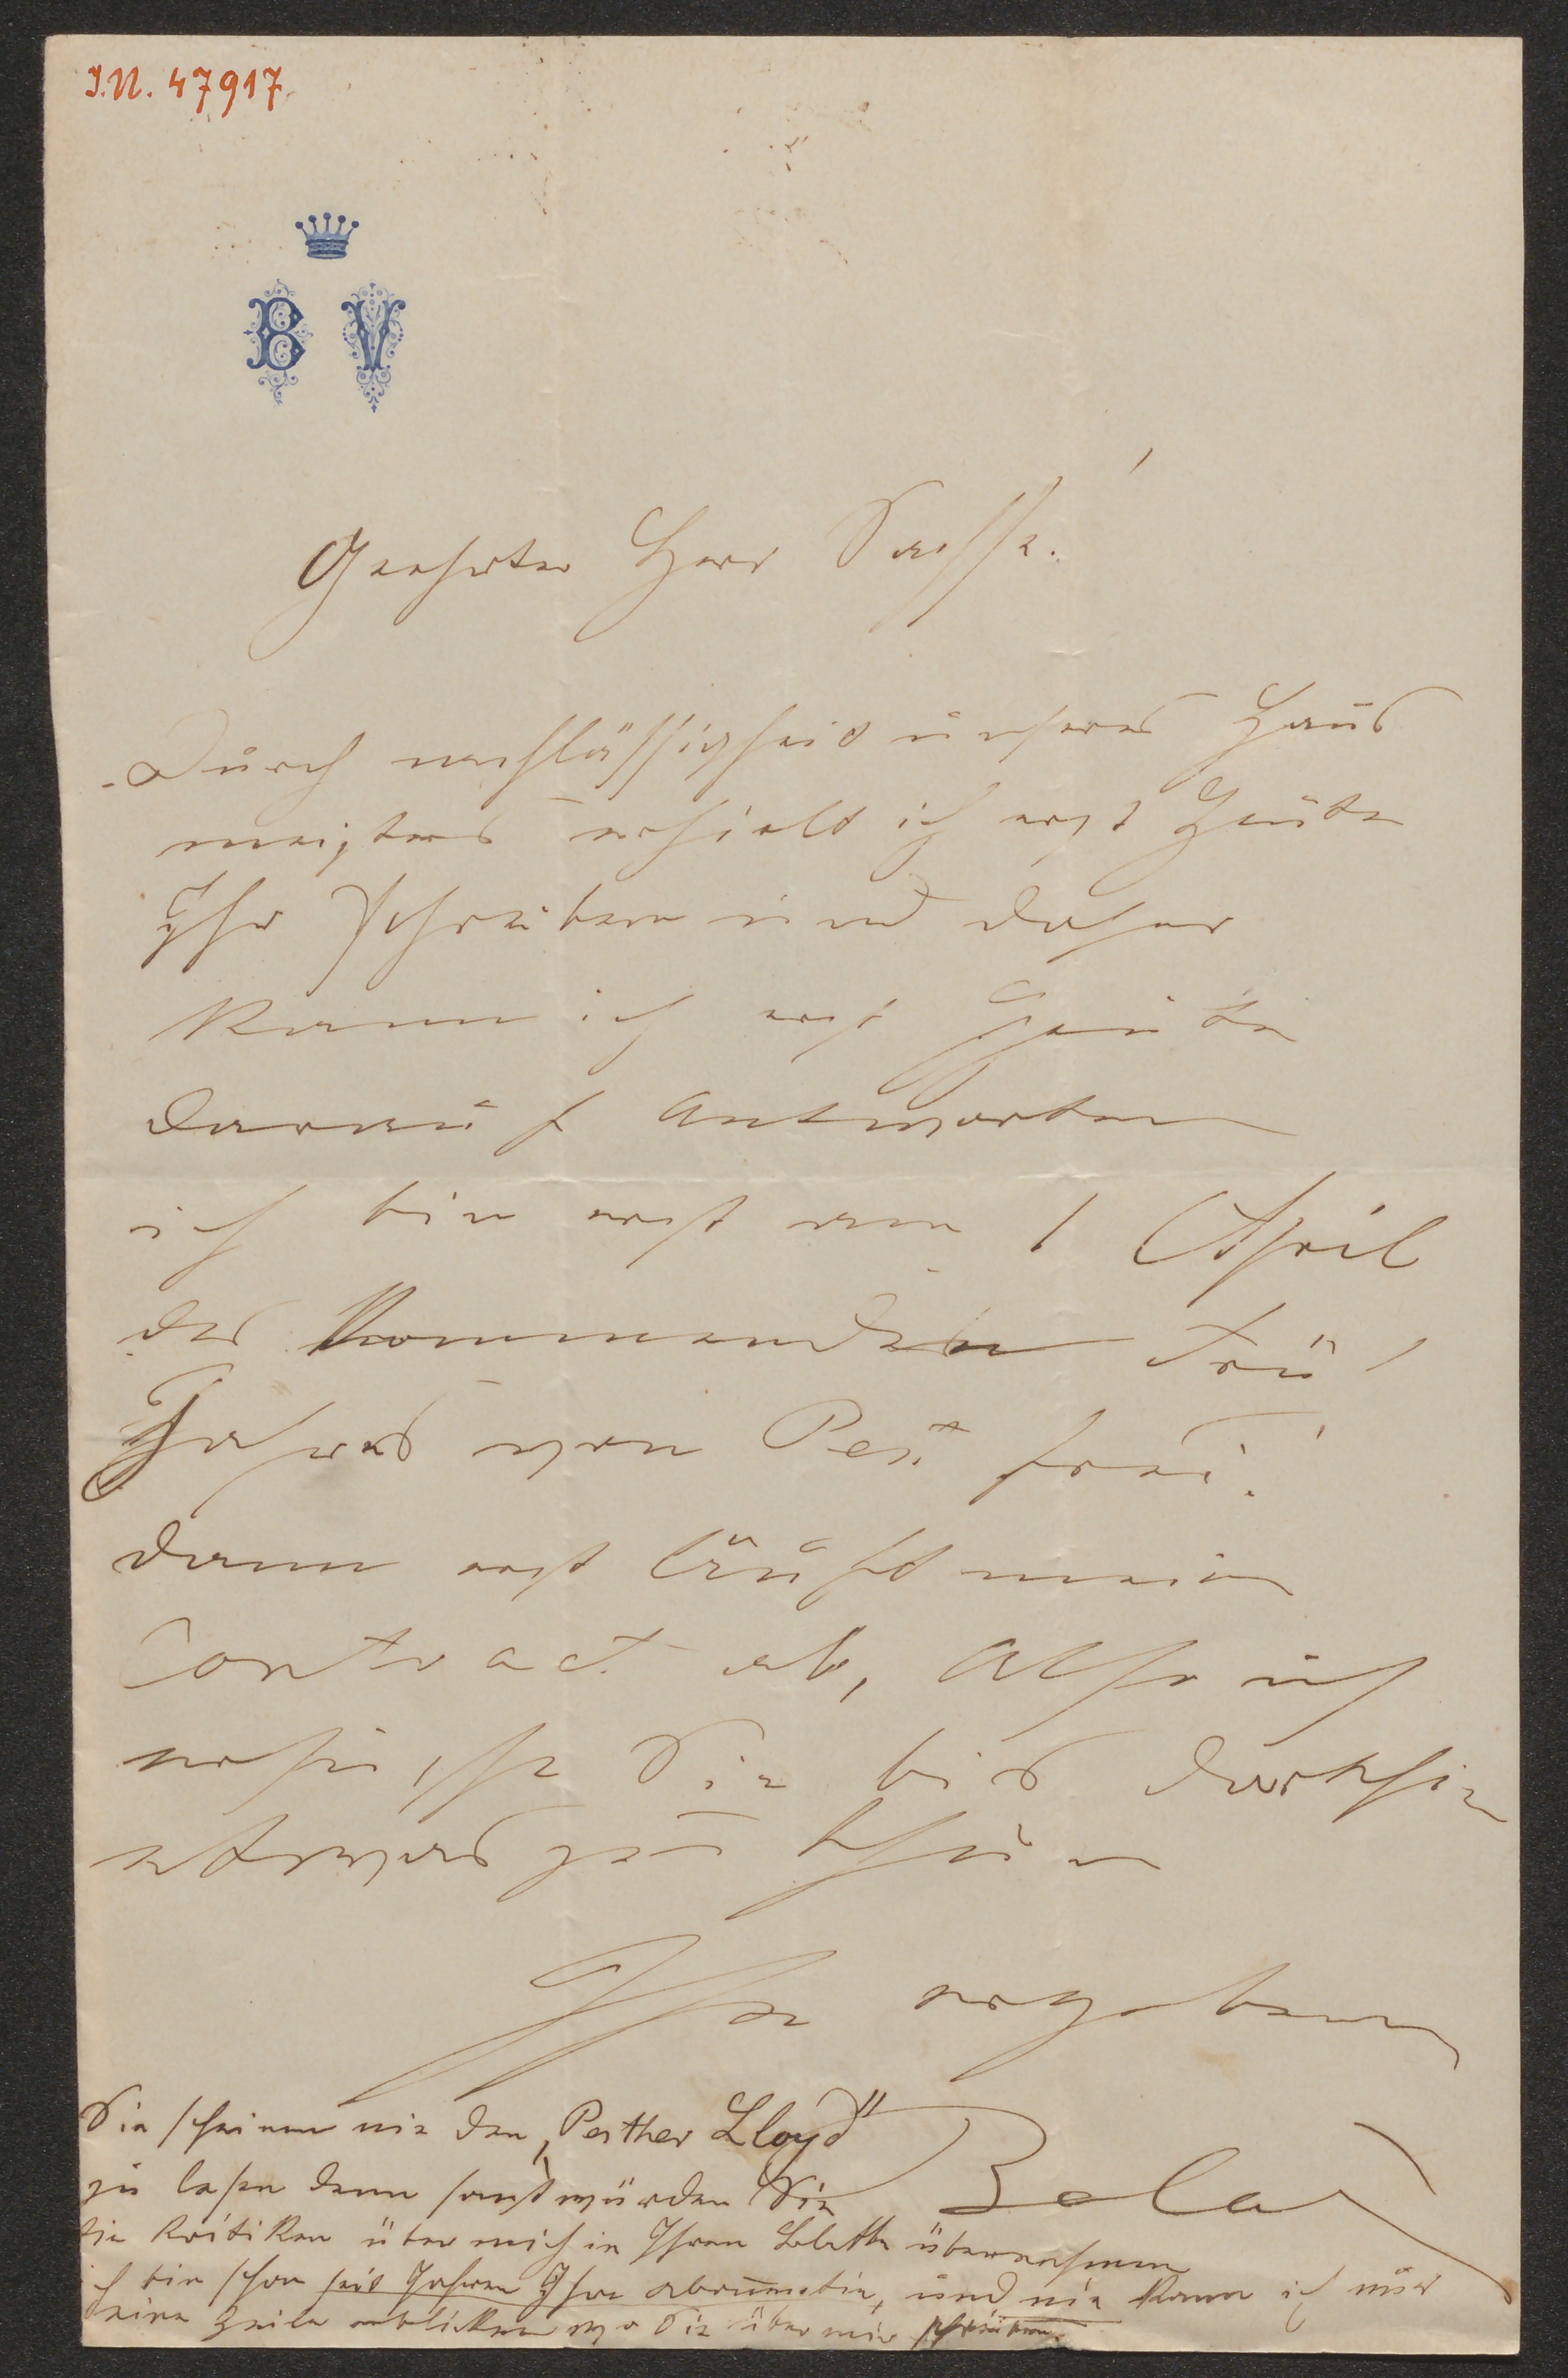 I.N. 47917
B V
Geehrter Herr Sasse!
Durch nachlässigkeit unseres Haus
meisters erhielt ich erst Heute
Ihr Schreiben und daher
kann ich erst Heute
darauf Antworten
ich bin erst am 1 April
des kommenden
Jahres von Pest frei!
dann erst läuft mein
Contract ab, Also ich
ersuche Sie bis dorthin
etwas zu thun
Ihre ergeben
Bela
Sie scheinen nie den „Pesther Lloyd"
zu lesen denn sonst würden Sie
die kritiken über mich in Ihren Blatte übernehmen
ich bin schon seit Jahren Ihre abonnentin, und nie kann ich nur
eine Zeile erblicken wo Sie über mir schreiben.